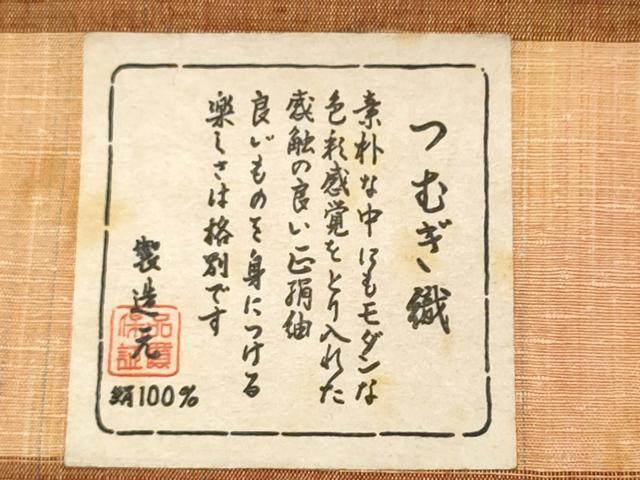 つむぎ織
素朴な中にもモダンな
色彩感覚をとり入れた
感触の良い正絹紬
良いものを身につける
楽しさは格別です
製造元
品質
保証
絹100%